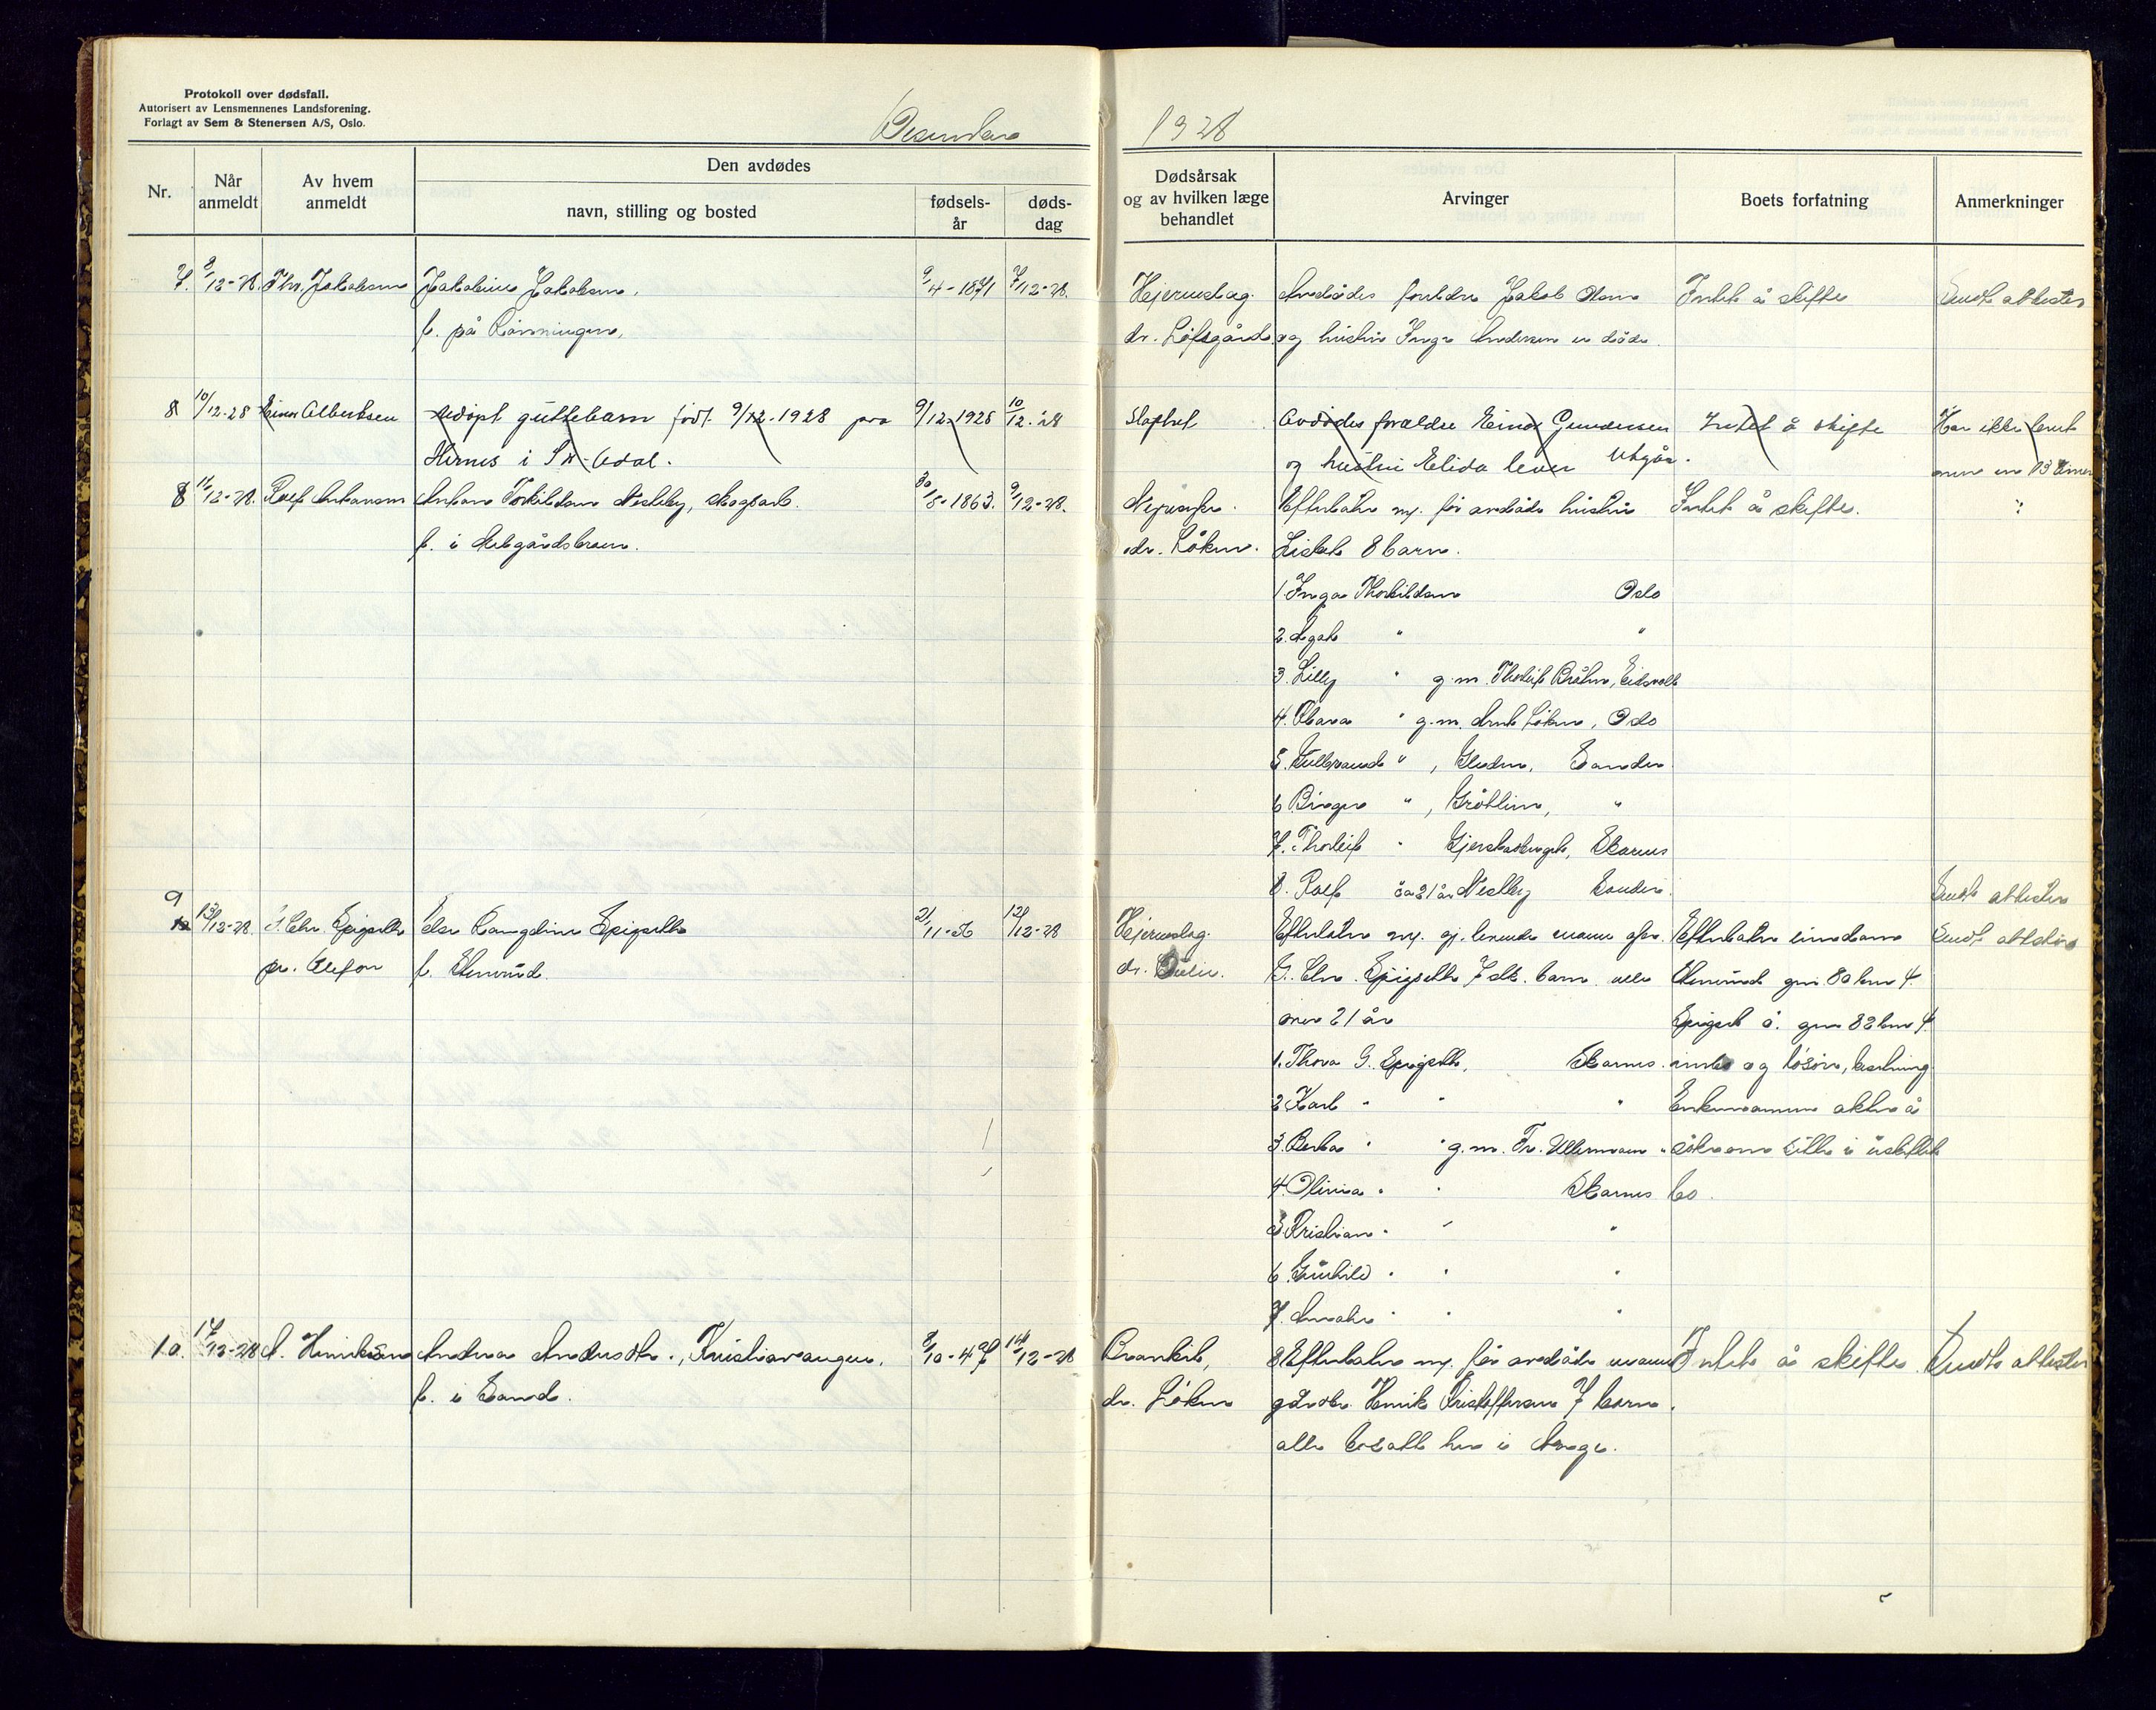 Protokoll over dødsfall.
Autorisert av Lensmennenes Landsforening.
Forlagt av Sem & Stenersen A/S, Oslo.
Desember 1928
Nr.
Når anmeldt
Av hvem anmeldt
Den avdødes
navn, stilling og bosted
fødsels-år
døds-dag
Dødsårsak og av hvilken læge behandlet
Arvinger
Boets forfatning
Anmerkninger
7. 8/12-28. Thv. Jakobsen Jakobine Jakobsen, 9/4-1871 7/12-28. Hjerneslag. Avdødes foreldre Jakob Olsen Intet å skifte Sendt attester
f. på Rønningen, dr. Løfsgård og hustru Inga Andersen er døde.
8 10/12-28 Einar Albertsen Udøpt guttebarn født 9/12-1928 9/12-1928 10/12-28 Slaghet Avdødes forældre Einar Gundersen Intet å skifte Har ikke levet
Hernes i S. Odal. og hustru Elida lever Utgår.
8 11/12-28. Rolf Antonsen Anton Torkildsen Nestby, skogsarb. 30/8-1863. 9/12-28. Efterlater sig før avdøde hustru Intet å skifte. "
dr. Løken. Lisbet 8 barn.
1. Inga Thorkildsen Oslo
2. Agate " "
3. Lilly " g.m. Thorleif Bråten, Eidsvoll
4. Klara " g.m. Arnt Løken, Oslo
5. Gulbrand " , Sander
6. Birger " , Grøtlien, "
7. Thorleif " Skarnes
8. Rolf ca 21 år Nestby Sander. Sendt attester
9 13/12-28 G. Chr. Spigseth Else Rangdine Spigseth 21/11-56 12/12-28 Hjerneslag. Efterlater sig gj.levende mann Efterlater eiendom Sendt attester
pr. telefon f. dr. G. Chr. Spigseth 7 stk. barn alle gnr 80 bnr 4.
over 21 år Spigset ø. gnr 82 bnr 4.
1. Thora G. Spigseth, Skarnes. innbo og løsøre, besetning
2 Karl " " " Enkemannen akter å
3. Berta " " g.m. Fr. Ullermoen " søke om sitte i uskiftet
4. Olivia " " Skarnes bo.
5 Kristian " " "
6. Gunhild " " "
7. " " "
10. 17/12-28 A. Henriksen Andrea Andersdtr., Kristiavangen, 8/10-47 14/12-28 Efterlater sig før avdøde mann Intet å skifte. Sendt attester
f. i Sand. dr. Løken Henrik Kristoffersen 7 barn.
alle bosatt her i